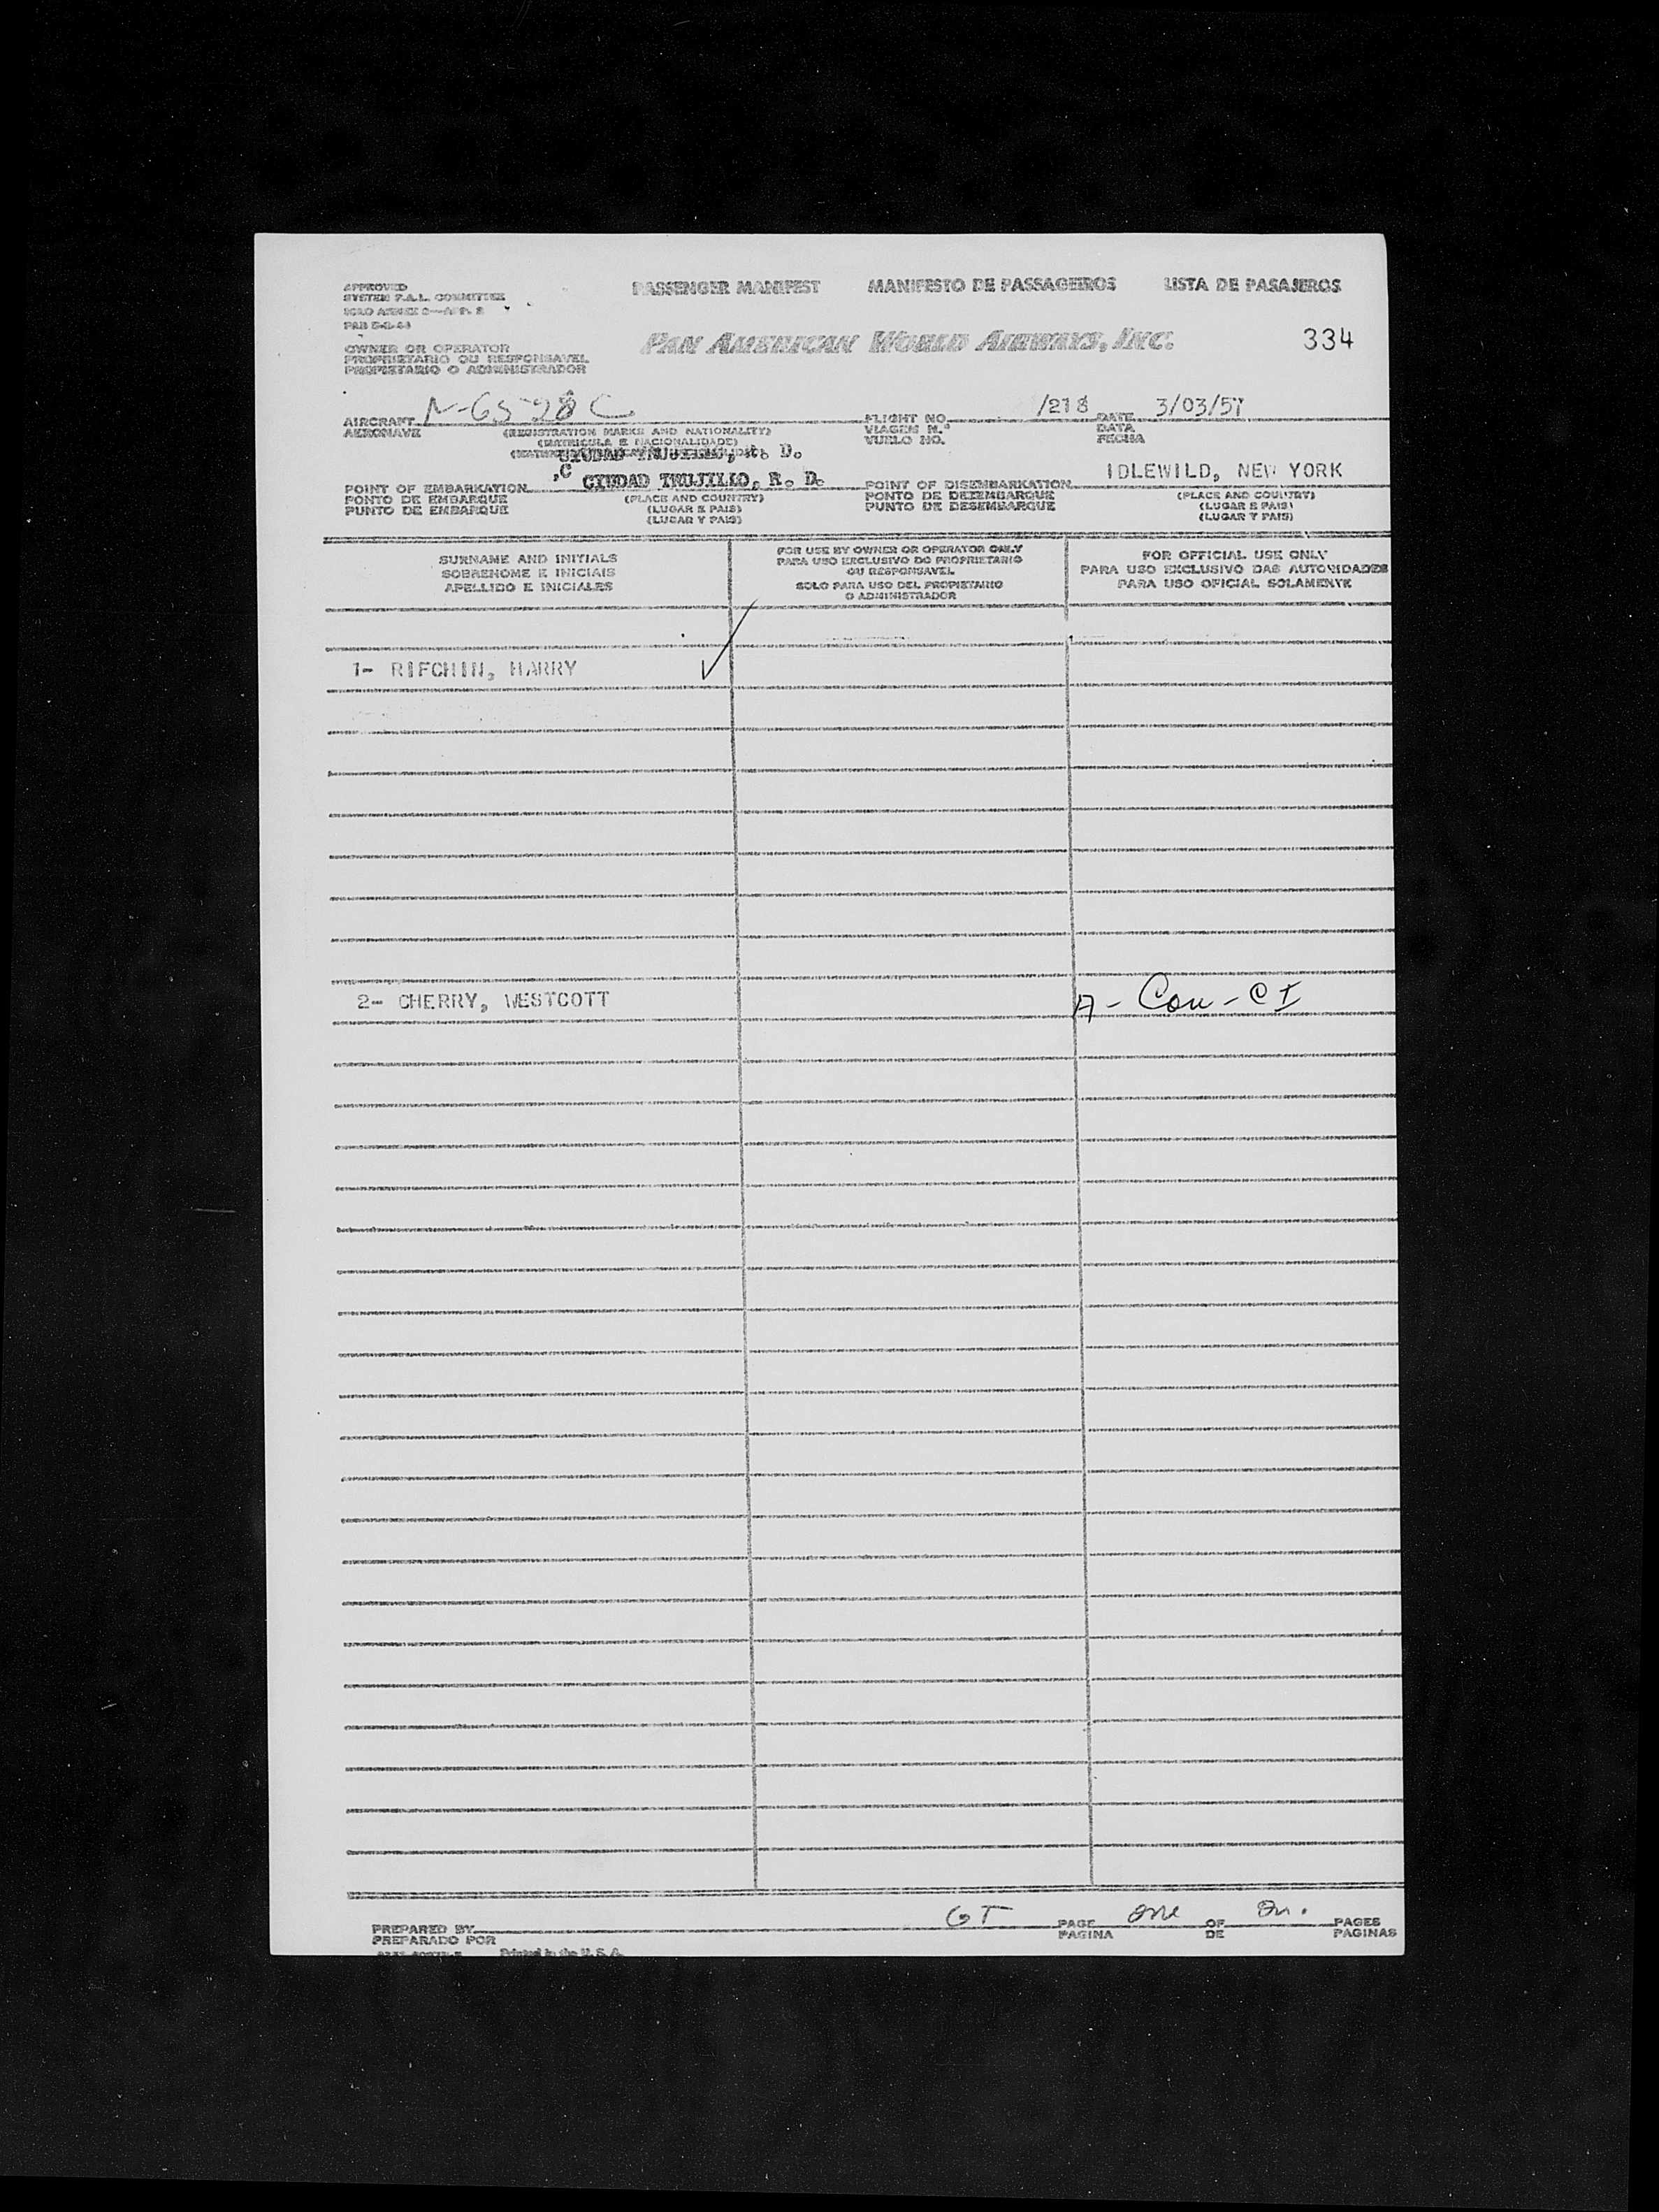 APPROVED
SYSTEM F.A.L. COMMITTEE
ICAO ANNEX 9—APP. 2
PASSENGER MANIFEST MANIFESTO DE PASSAGEIROS LISTA DE PASAJEROS
PAN AMERICAN WORLD AIRWAYS, INC. 334
OWNER OR OPERATOR
PROPRIETARIO OU RESPONSAVEL
PROPIETARIO O ADMINISTRADOR
AIRCRAFT N-6528C FLIGHT NO. /218 DATE 3/03/57
AERONAVE (REGISTRATION MARKS AND NATIONALITY) VIAGEM N.º DATA
(MATRICULA E NACIONALIDADE) VUELO NO. FECHA
CIUDAD TRUJILLO, R. D.
,C CIUDAD TRUJILLO, R. D. IDLEWILD, NEW YORK
POINT OF EMBARKATION (PLACE AND COUNTRY) POINT OF DISEMBARKATION (PLACE AND COUNTRY)
PONTO DE EMBARQUE (LUGAR E PAIS) PONTO DE DEZEMBARQUE (LUGAR E PAIS)
PUNTO DE EMBARQUE (LUGAR Y PAIS) PUNTO DE DESEMBARQUE (LUGAR Y PAIS)
SURNAME AND INITIALS
SOBRENOME E INICIAIS
APELLIDO E INICIALES
FOR USE BY OWNER OR OPERATOR ONLY
PARA USO EXCLUSIVO DO PROPRIETARIO
OU RESPONSAVEL
SOLO PARA USO DEL PROPIETARIO
O ADMINISTRADOR
FOR OFFICIAL USE ONLY
PARA USO EXCLUSIVO DAS AUTORIDADES
PARA USO OFICIAL SOLAMENTE
1- RIFCHIN, HARRY
2- CHERRY, WESTCOTT A - Con - CI
PREPARED BY GT PAGE one OF PAGES
PREPARADO POR PAGINA DE PAGINAS
Printed in the U. S. A.